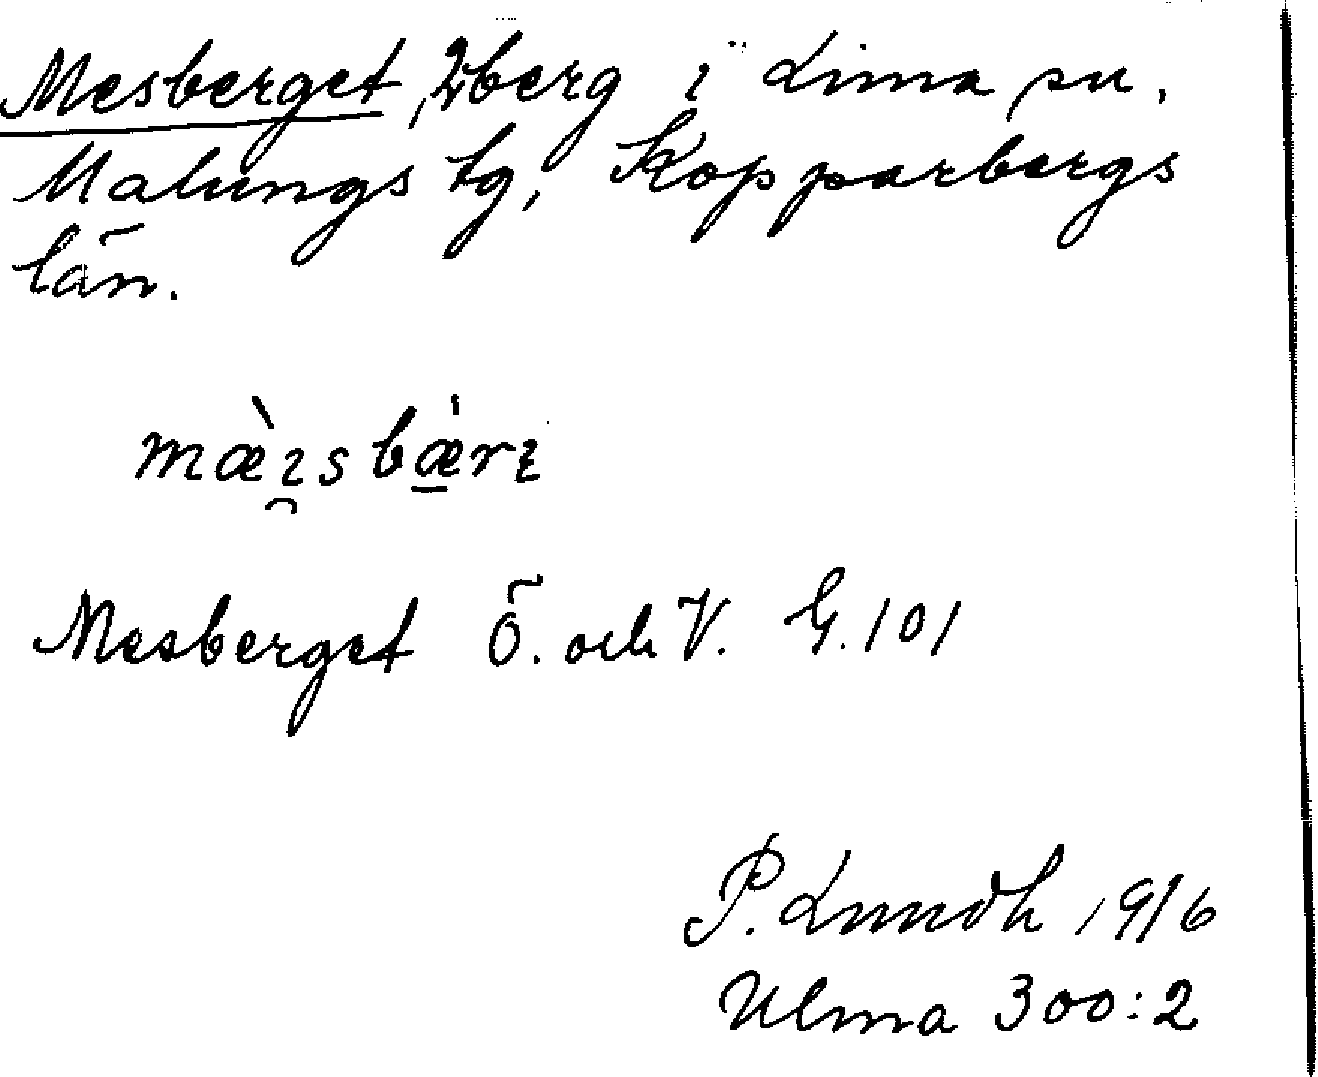 Mesberget, 2 berg i Lima sn,
Malungs tg, Kopparbergs
län.
mæ̀i̯sbæ̀rı
Mesberget Ö. och V. G. 101
P. Lundh 1916
Ulma 300:2